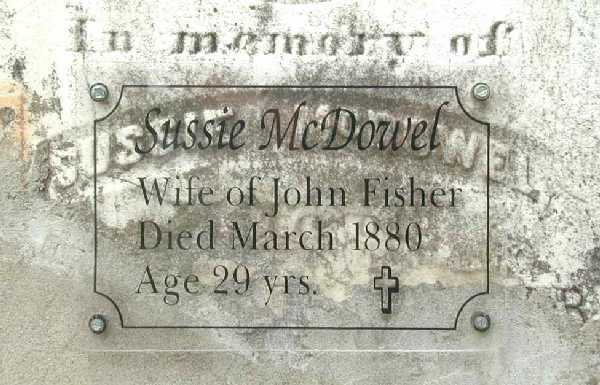 In memory of
Sussie McDowel
Wife of John Fisher
Died March 1880
Age 29 yrs.